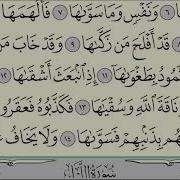 ٦ وَنَفْسٍ وَمَا سَوَّىٰهَا ٧ فَأَلْهَمَهَا
٨ قَدْ أَفْلَحَ مَن زَكَّىٰهَا ٩ وَقَدْ خَابَ مَن
ثَمُودُ بِطَغْوَىٰهَا ١١ إِذِ ٱنۢبَعَثَ أَشْقَىٰهَا ١٢
نَاقَةَ ٱللَّهِ وَسُقْيَٰهَا ١٣ فَكَذَّبُوهُ فَعَقَرُو
هِم بِذَنۢبِهِمْ فَسَوَّىٰهَا ١٤ وَلَا يَخَافُ
سُورَةُ